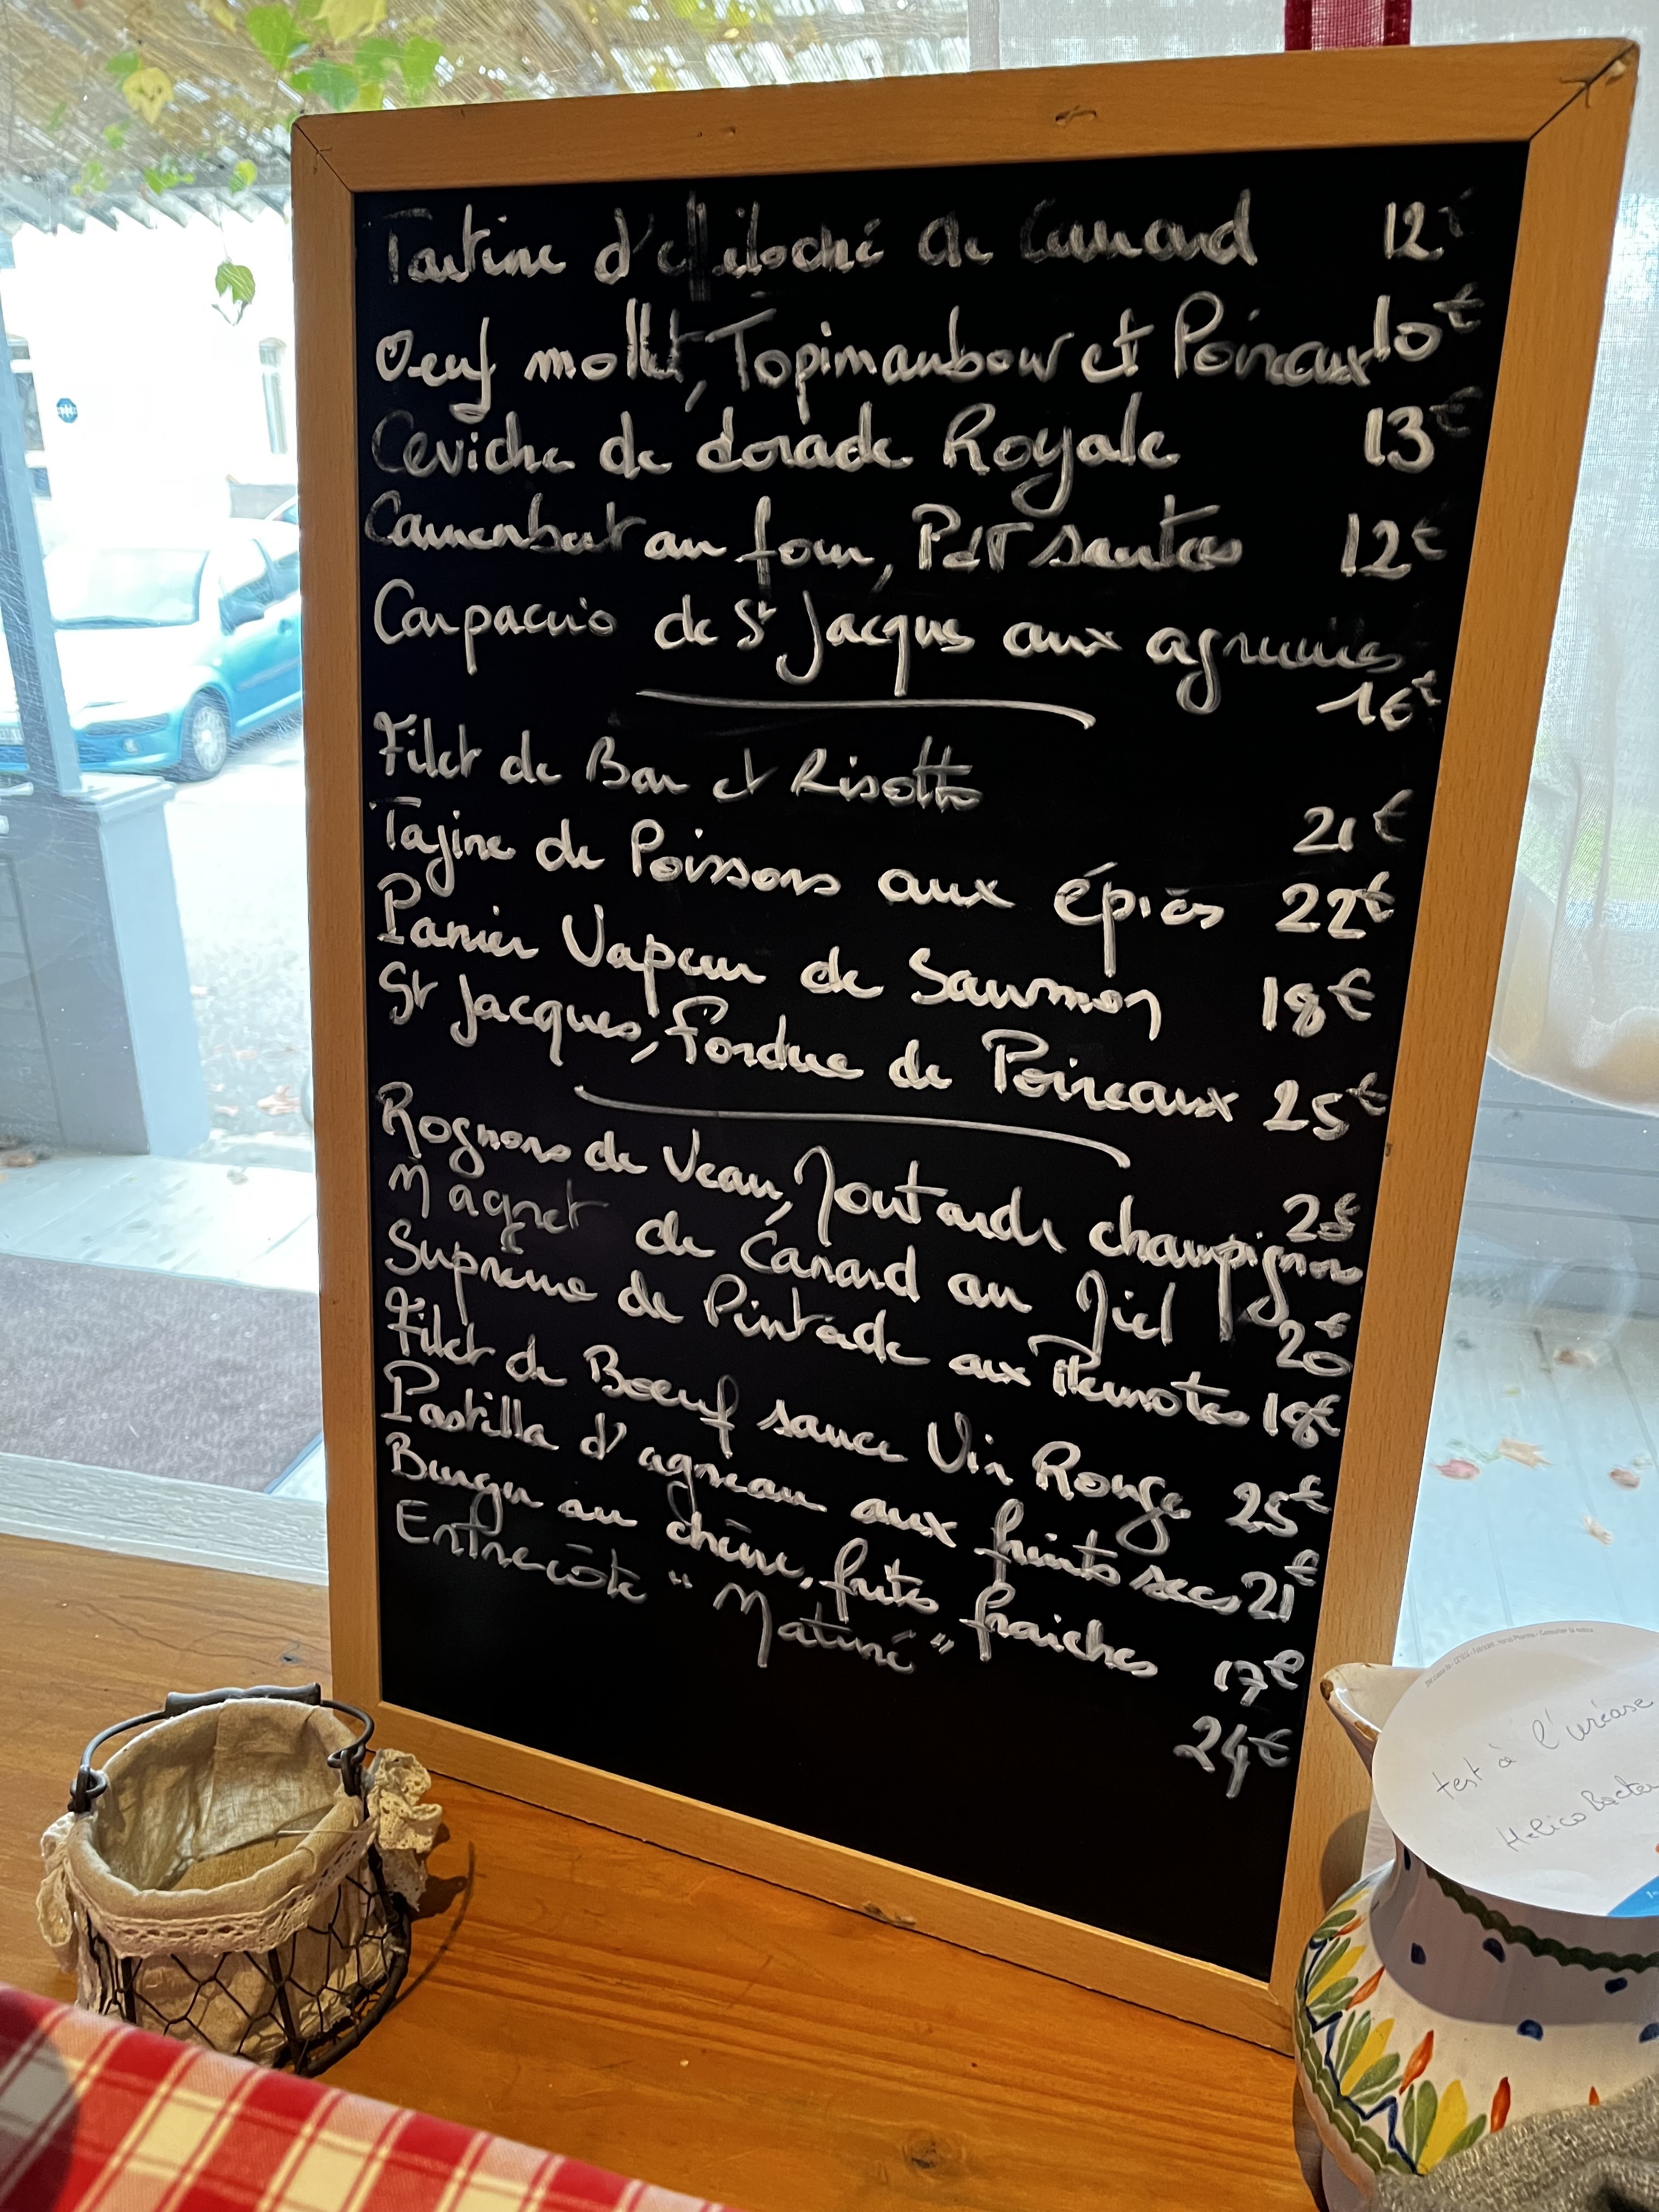 Tartine d'effiloché de Canard 12€
Oeuf mollet, Topimanbour et Poireaux 10€
Ceviche de dorade Royale 13€
Camembert au four, PdT sautées 12€
Carpaccio de St Jacques aux agrumes
16€
Filet de Bar et Risotto 21€
Tajine de Poissons aux épices 22€
Panier Vapeur de Saumon 18€
St Jacques, Fondue de Poireaux 25€
Rognons de Veau, Moutarde champignons 23€
Magret de Canard au Miel 20€
Suprême de Pintade aux 18€
Filet de Boeuf sauce Vin Rouge 25€
Pastilla d'agneau aux fruits secs 21€
Burger au chèvre, frites fraiches 17€
Entrecôte "Maturé" 24€
test à l'uréase
Helico Bacter